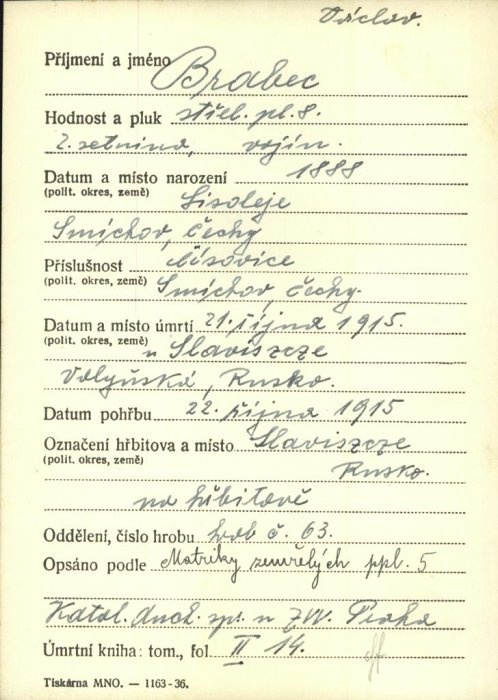 Václav.
Příjmení a jméno Brabec
Hodnost a pluk střel. pl. 8.
2. setnina, vojín.
Datum a místo narození 1888
(polit. okres, země) Lisoleje
Smíchov, Čechy
Příslušnost Čísovice
(polit. okres, země) Smíchov, Čechy.
Datum a místo úmrtí 21. října 1915.
(polit. okres, země) u Slaviszcze
Volyňská, Rusko.
Datum pohřbu 22. října 1915
Označení hřbitova a místo Slaviszcze
(polit. okres, země) Rusko.
na hřbitově
Oddělení, číslo hrobu hrob č. 63.
Opsáno podle Matriky zemřelých ppl. 5
Katol. duch. sp. u ZVV. Praha
Úmrtní kniha: tom., fol. II 14.
Tiskárna MNO. — 1163-36.